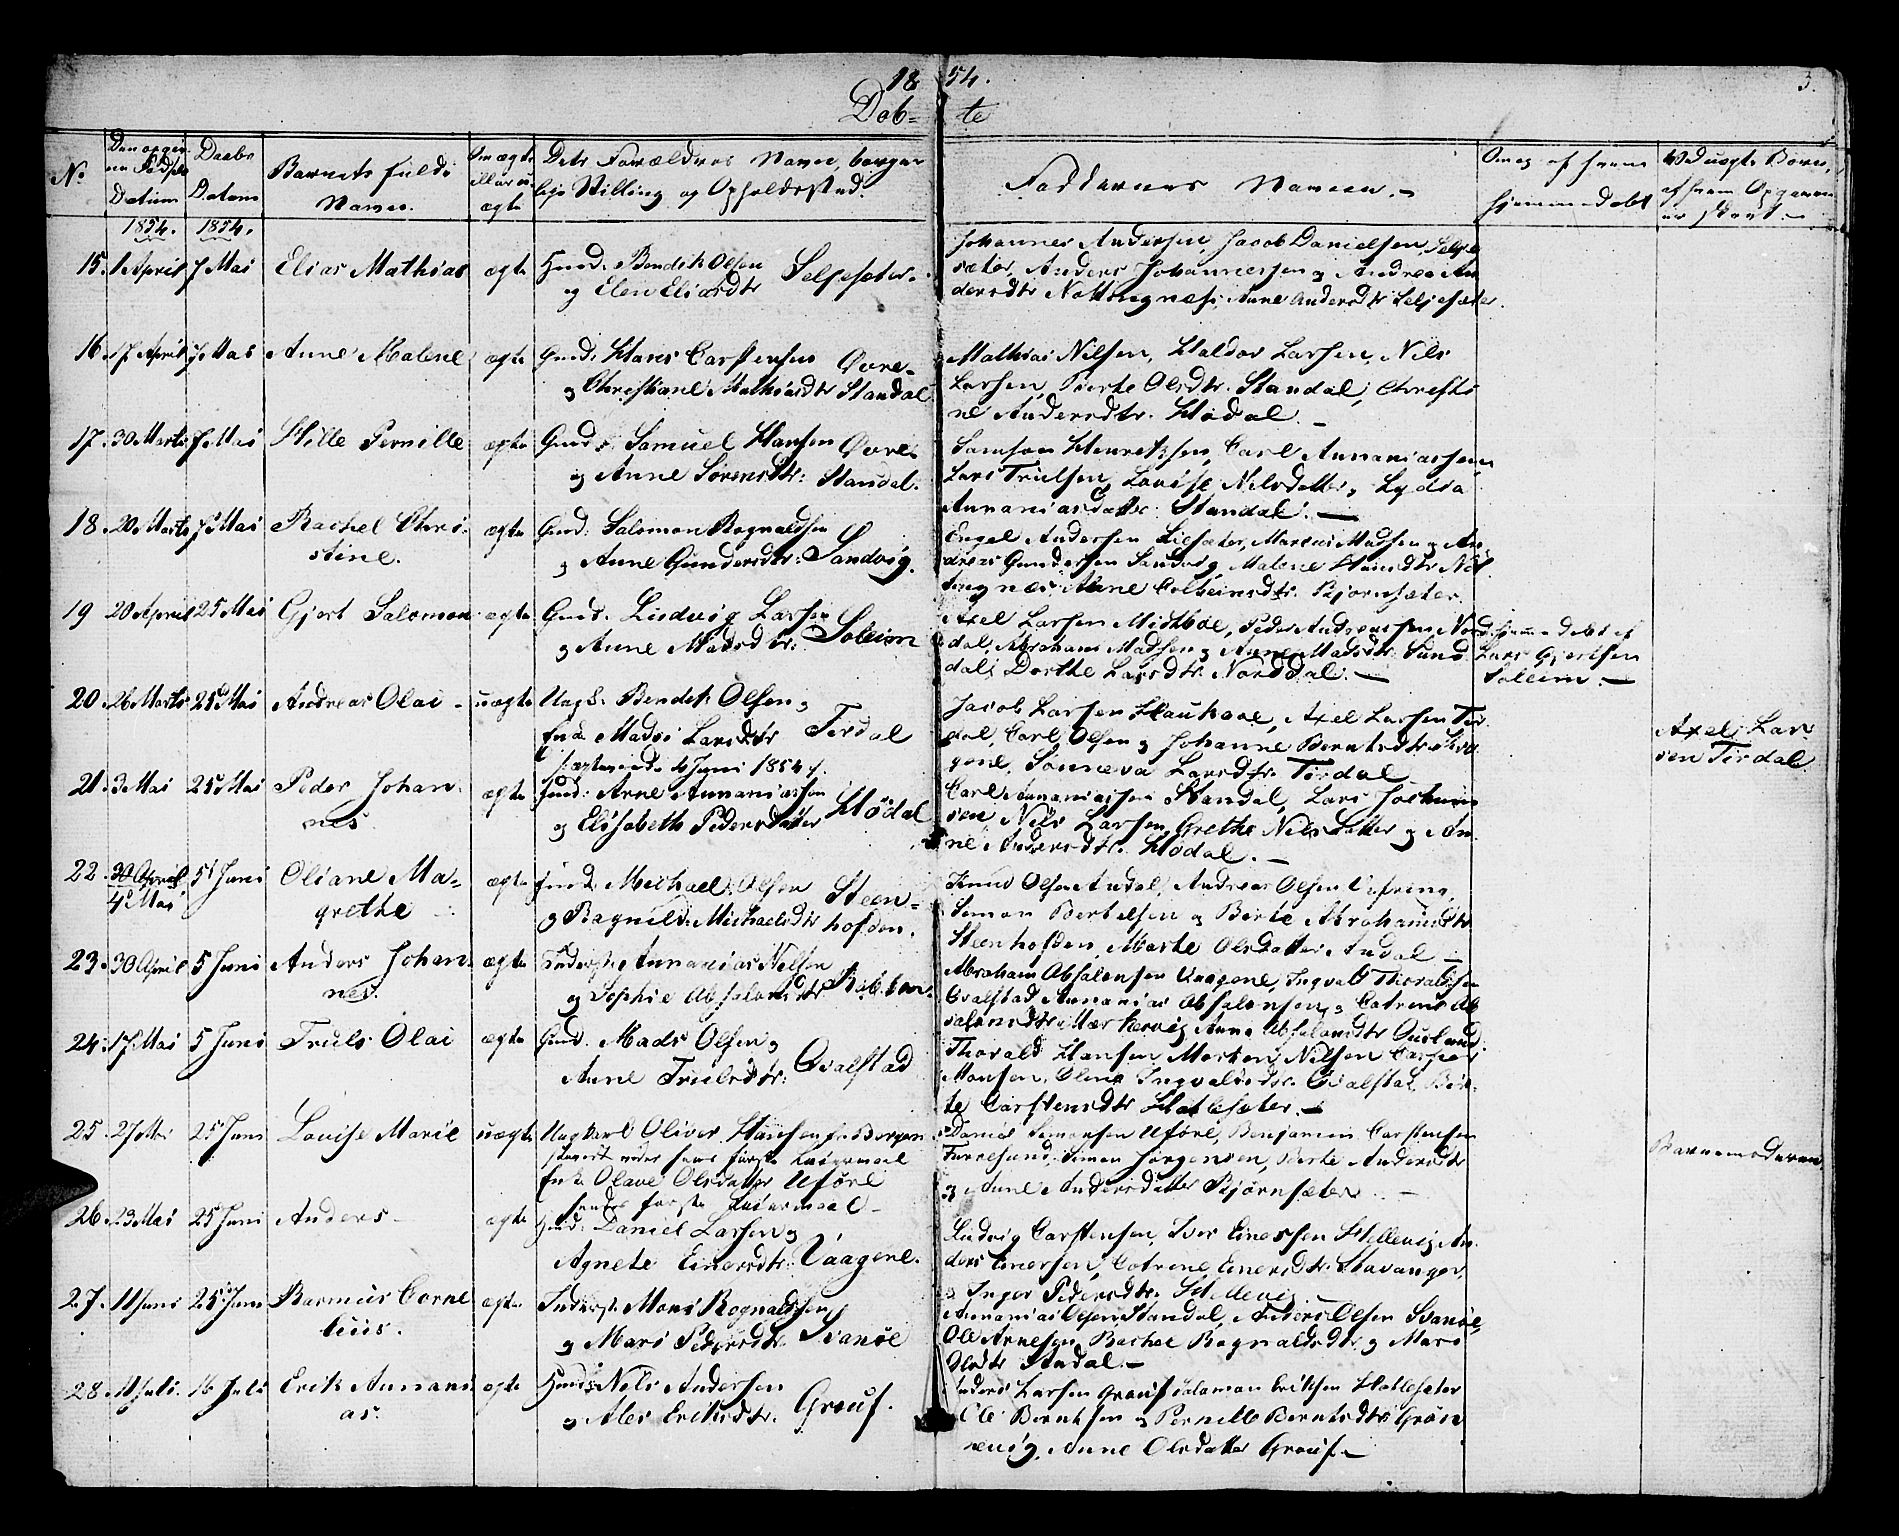 18 54. 3.
Døb- te
No
Den opgivne Fødsels Datum
Daabs Datum
Barnets fulde Navn.
Om ægte eller uægte
Dets Forældres Navne, borgerlige Stilling og Opholdssted.
Faddernes Navne. -
Om og af hvem hjemmedøbt
Ved uægte Børn, af hvem Opgaven er skeet. -
1854. 1854.
15. 1 April 7 Mai Elias Mathias ægte Gmd. Bendik Olsen
og Elen Eliasdtr Seljesæter.
Johannes Andersen, Jacob Danielsen, Selje
sæter, Anders Johannessen og Andrea An
dersdtr Nottingnæs, Anne Andersdtr Seljesæter.
16. 17 April 7 Mai Anne Malene ægte Gmd. Hans Carstensen
og Christiane Mathiasdtr Øvre-
Standal
Mathias Nilsen, Haldor Larsen, Nils
Larsen, Berte Olsdtr. Standal, Christi
ne Andersdtr. Hødal. -
17. 30 Marts 7 Mai Hille Pernille ægte Gmd. Samuel Hansen
og Anne Sørensdtr: Øvre
Standal.
Samson Henriksen, Carl Annaniassen
Lars Trulsen, Lovise Nilsdatter, Lydia
Annaniasdatter Standal. -
18. 20 Marts 7 Mai Rachel Chri-
stine. ægte Gmd: Salomon Rognaldsen
og Anne Gundersdtr: Sandvig.
Engel Andersen Liesæter, Marcus Madsen, An
dreas Gundersen Sandvig, Malene Hansdtr Not
tingnæs, Anne Colbeinsdtr. Bjørnsæter.
19 20 April 25 Mai Gjert Salomon ægte Gmd. Ludvig Larsen
og Anne Madsdtr: Soleim
Axel Larsen Midtbøe, Peder Andreassen Nord
dal, Abraham Madsen og Anne Madsdtr. Sund
dal, Dorthe Larsdtr. Norddal. -
Hjemmedøbt af
Lars Gjertsen
Soleim. -
20. 26 Marts 25 Mai Andreas Olai - uægte Ungk. Bendik Olsen og
Enke Madsi Larsdtr Tirdal
/ægteviede 4 Juni 1854/.
Jacob Larsen Haukaae, Axel Larsen Tir
dal, Carl Olsen og Johanne Berntsdtr
gene, Sønneva Larsdtr. Tirdal
Axel Lar
sen Tirdal
21. 3 Mai 25 Mai Peder Johan
nes. ægte Gmd: Arne Annaniassen
og Elisabeth Pedersdatter Hødal
Carl Annaniassen Standal, Lars Jochum
sen, Nils Larsen, Grethe Nilsdatter og An
ne Andersdtr. Hødal. -
22. 30 April
4 Mai 5 Juni Oliane Ma-
grethe ægte Gmd. Michael Olsen
og Ragnild Michaelsdtr Steen-
hofden.
Knud Olsen Andal, Andreas Olsen Vefring,
Simon Bertelsen og Berte Abrahamsdtr
Steenhofden, Marte Olsdatter Andal -
23. 30 April 5 Juni Anders Johan
nes. ægte Inderst Annanias Nilsen
og Sophie Absalonsdtr
Abraham Absalonsen Vaagene, Ingvald Thoraldsen
Qvalstad, Annanias Absalonsen og Catrine Ab
salonsdtr Anne Absalonsdtr
24. 17 Mai 5 Juni Truls Olai ægte Gmd. Mads Olsen og
Anne Trulsdtr: Qvalstad
Thorald Hansen, Morten Nilsen,
Monsen, Oline Ingvaldsdtr. Qvalstad, Ber
te Carstensdtr Hatlesæter. -
25. 27 Mai 25 Juni Lovise Marie uægte Ungkarl Oliver Hansen fra Bergen
hans første Leiermaal
Enke Olave Olsdatter Uføre
hendes første Leiermaal -
Daniel Simonsen Uføre, Benjamin Carstensen
Furresund, Simon Jørgensen, Berte Andersdtr
og Anne Andersdatter Bjørnsæter. -
Barnemoderen
26. 23 Mai 25 Juni Anders - ægte Gmd. Daniel Larsen og
Agnete Einersdtr. Vaagene.
Ludvig Carstensen, Iver Einersen Hellevig, An
ders Einersen, Catrine Einersdtr. Stavanger,
og Inger Pedersdtr. Hellevig. -
27. 11 Juni 25 Juni Rasmus Corne
lius. ægte Inderst Mons Rognaldsen
og Mari Pedersdtr. Svanøe
Annanias Olsen, Standal, Anders Olsen Svanøe,
Ole Arnesen, Rachel Rognaldsdtr. og Mari
Olsdtr Andal. -
28. 11 Juli 16 Juli Erik Annani
as. ægte Gmd. Nils Andersen
og Ales Eriksdtr. Grouf.
Anders Larsen Grouf, Salomon Eriksen Hatlesæter
Ole Berntsen og Pernille Berntsdtr
Anne Olsdatter Grouf -